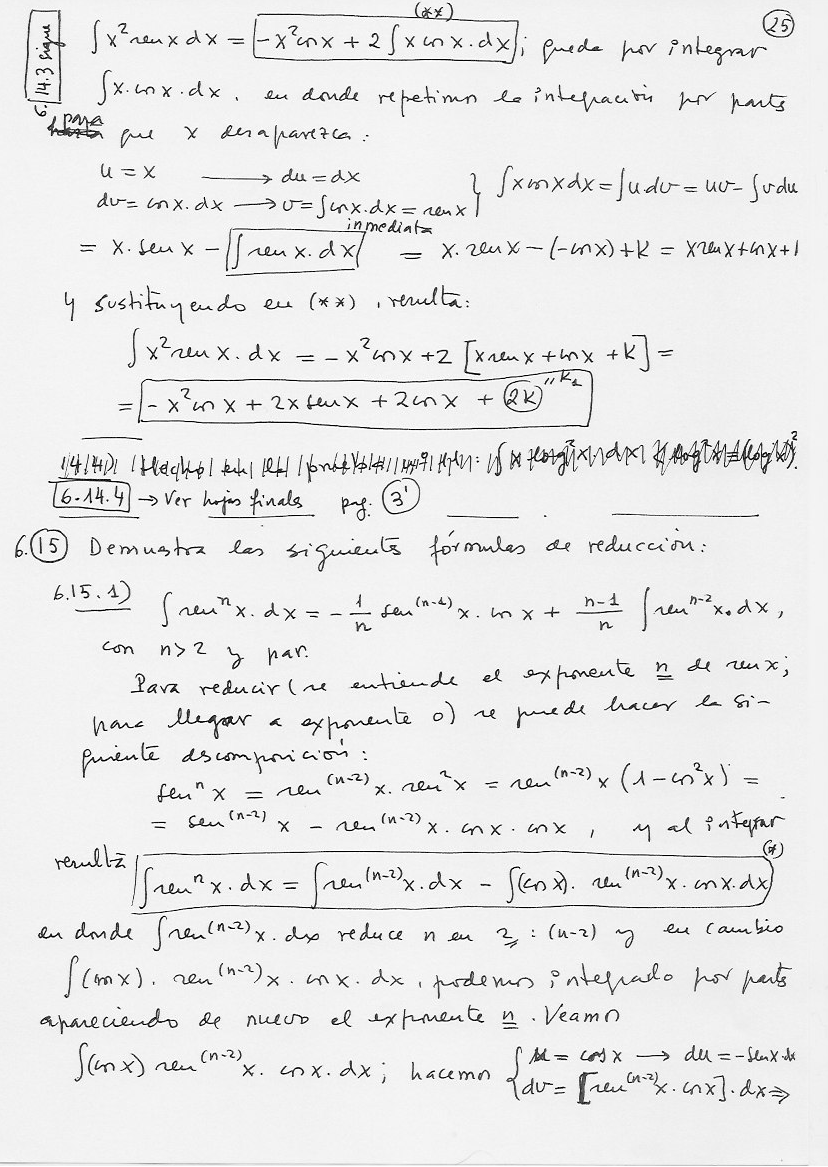 (25)
6.14.3 sigue
(**)
∫x² sen x dx = -x² cos x + 2 ∫x cos x · dx ; queda por integrar
∫x · cos x · dx , en donde repetimos la integración por parts
para que x desaparezca :
u = x ⟶ du = dx
dv = cos x · dx ⟶ v = ∫cos x · dx = sen x } ∫x cos x dx = ∫u dv = uv - ∫v du
= x · sen x - ∫sen x · dx inmediata = x · sen x - (-cos x) + K = x sen x + cos x + 1
y sustituyendo en (**) , resulta :
∫x² sen x · dx = -x² cos x + 2 [x sen x + cos x + K] =
= -x² cos x + 2x sen x + 2 cos x + 2K " K₁
6-14.4 → Ver hojas finales pag. 3'
6.15 Demuestra las siguientes fórmulas de reducción :
6.15.1) ∫senⁿ x · dx = - 1/n sen⁽ⁿ⁻¹⁾ x · cos x + (n-1)/n ∫senⁿ⁻² x · dx ,
con n > 2 y par.
Para reducir (se entiende el exponente n de sen x ;
para llegar a exponente 0) se puede hacer la si-
guiente descomposición :
senⁿ x = sen⁽ⁿ⁻²⁾ x · sen² x = sen⁽ⁿ⁻²⁾ x (1 - cos² x) =
= sen⁽ⁿ⁻²⁾ x - sen⁽ⁿ⁻²⁾ x · cos x · cos x , y al integrar
resulta ∫senⁿ x · dx = ∫sen⁽ⁿ⁻²⁾ x · dx - ∫(cos x) · sen⁽ⁿ⁻²⁾ x · cos x · dx (*)
en donde ∫sen⁽ⁿ⁻²⁾ x · dx reduce n en 2 : (n-2) y en cambio
∫(cos x) · sen⁽ⁿ⁻²⁾ x · cos x · dx , podemos integrarlo por parts
apareciendo de nuevo el exponente n . Veamos
∫(cos x) sen⁽ⁿ⁻²⁾ x · cos x · dx ; hacemos { u = cos x ⟶ du = -sen x · dx
dv = [sen⁽ⁿ⁻²⁾ x · cos x] · dx ⇒